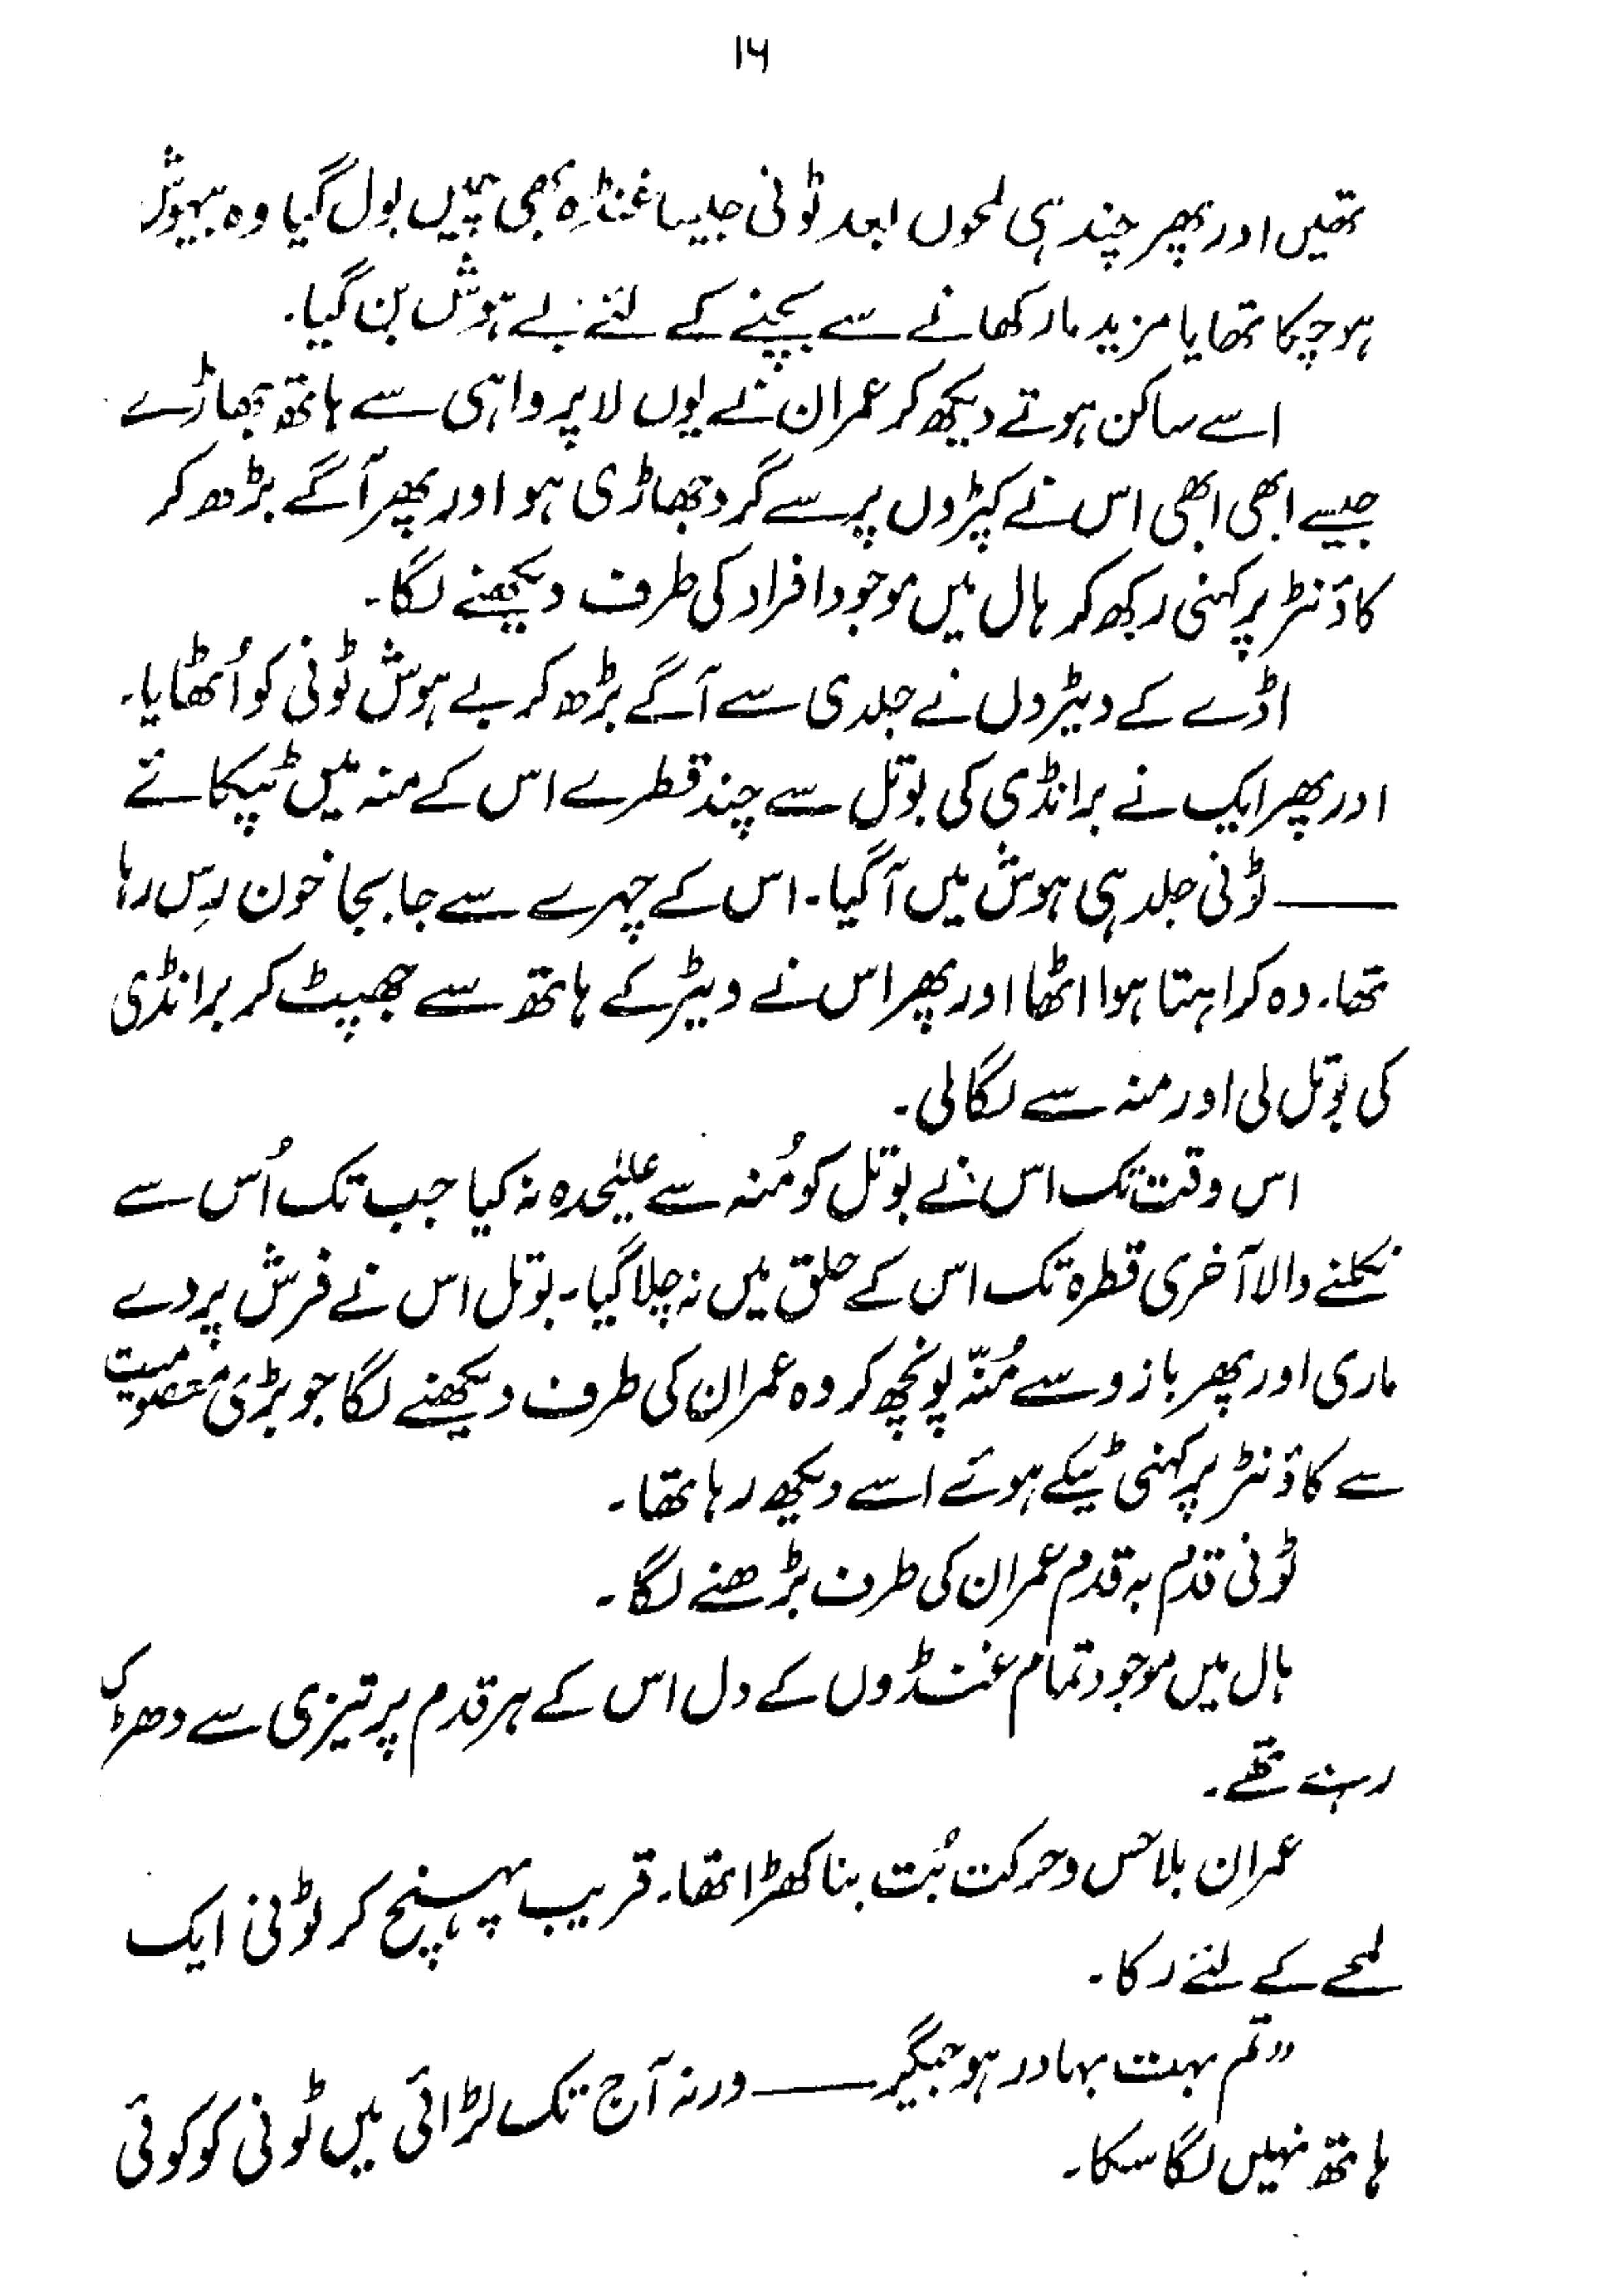 ۱۶
تھیں اور پھر چند ہی لمحوں بعد ٹونی جیسا غنڈہ بھی چیں بول گیا وہ بیہوش
ہو چکا تھا یا مزید مار کھانے سے بچنے کے لئے بے ہوش بن گیا۔
اسے ساکن ہوتے دیکھ کر عمران نے یوں لاپرواہی سے ہاتھ جھاڑے
جیسے ابھی ابھی اس نے کپڑوں پر سے گرد جھاڑی ہو اور پھر آگے بڑھ کر
کاؤنٹر پر کہنی رکھ کر ہال میں موجود افراد کی طرف دیکھنے لگا۔
اڈے کے ویٹروں نے جلدی سے آگے بڑھ کر بے ہوش ٹونی کو اُٹھایا۔
اور پھر ایک نے برانڈی کی بوتل سے چند قطرے اس کے منہ میں ٹپکائے
—— ٹونی جلد ہی ہوش میں آگیا۔ اس کے چہرے سے جابجا خون رِس رہا
تھا۔ وہ کراہتا ہوا اٹھا اور پھر اس نے ویٹر کے ہاتھ سے جھپٹ کر برانڈی
کی بوتل لی اور منہ سے لگالی۔
اس وقت تک اس نے بوتل کو مُنہ سے علیٰحدہ نہ کیا جب تک اُس سے
نکلنے والا آخری قطرہ تک اس کے حلق میں نہ چلا گیا۔ بوتل اس نے فرش پر دے
ماری اور پھر بازو سے مُنہ پونچھ کر وہ عمران کی طرف دیکھنے لگا جو بڑی معصومیت
سے کاؤنٹر پر کہنی ٹیکے ہوئے اسے دیکھ رہا تھا۔
ٹونی قدم بہ قدم عمران کی طرف بڑھنے لگا۔
ہال میں موجود تمام غنڈوں کے دل اس کے ہر قدم پر تیزی سے دھڑک
رہے تھے۔
عمران بلا حس و حرکت بُت بنا کھڑا تھا۔ قریب پہنچ کر ٹونی ایک
لمحے کے لئے رکا۔
"تم بہت بہادر ہو جیگر —— ورنہ آج تک لڑائی میں ٹونی کو کوئی
ہاتھ نہیں لگا سکا۔